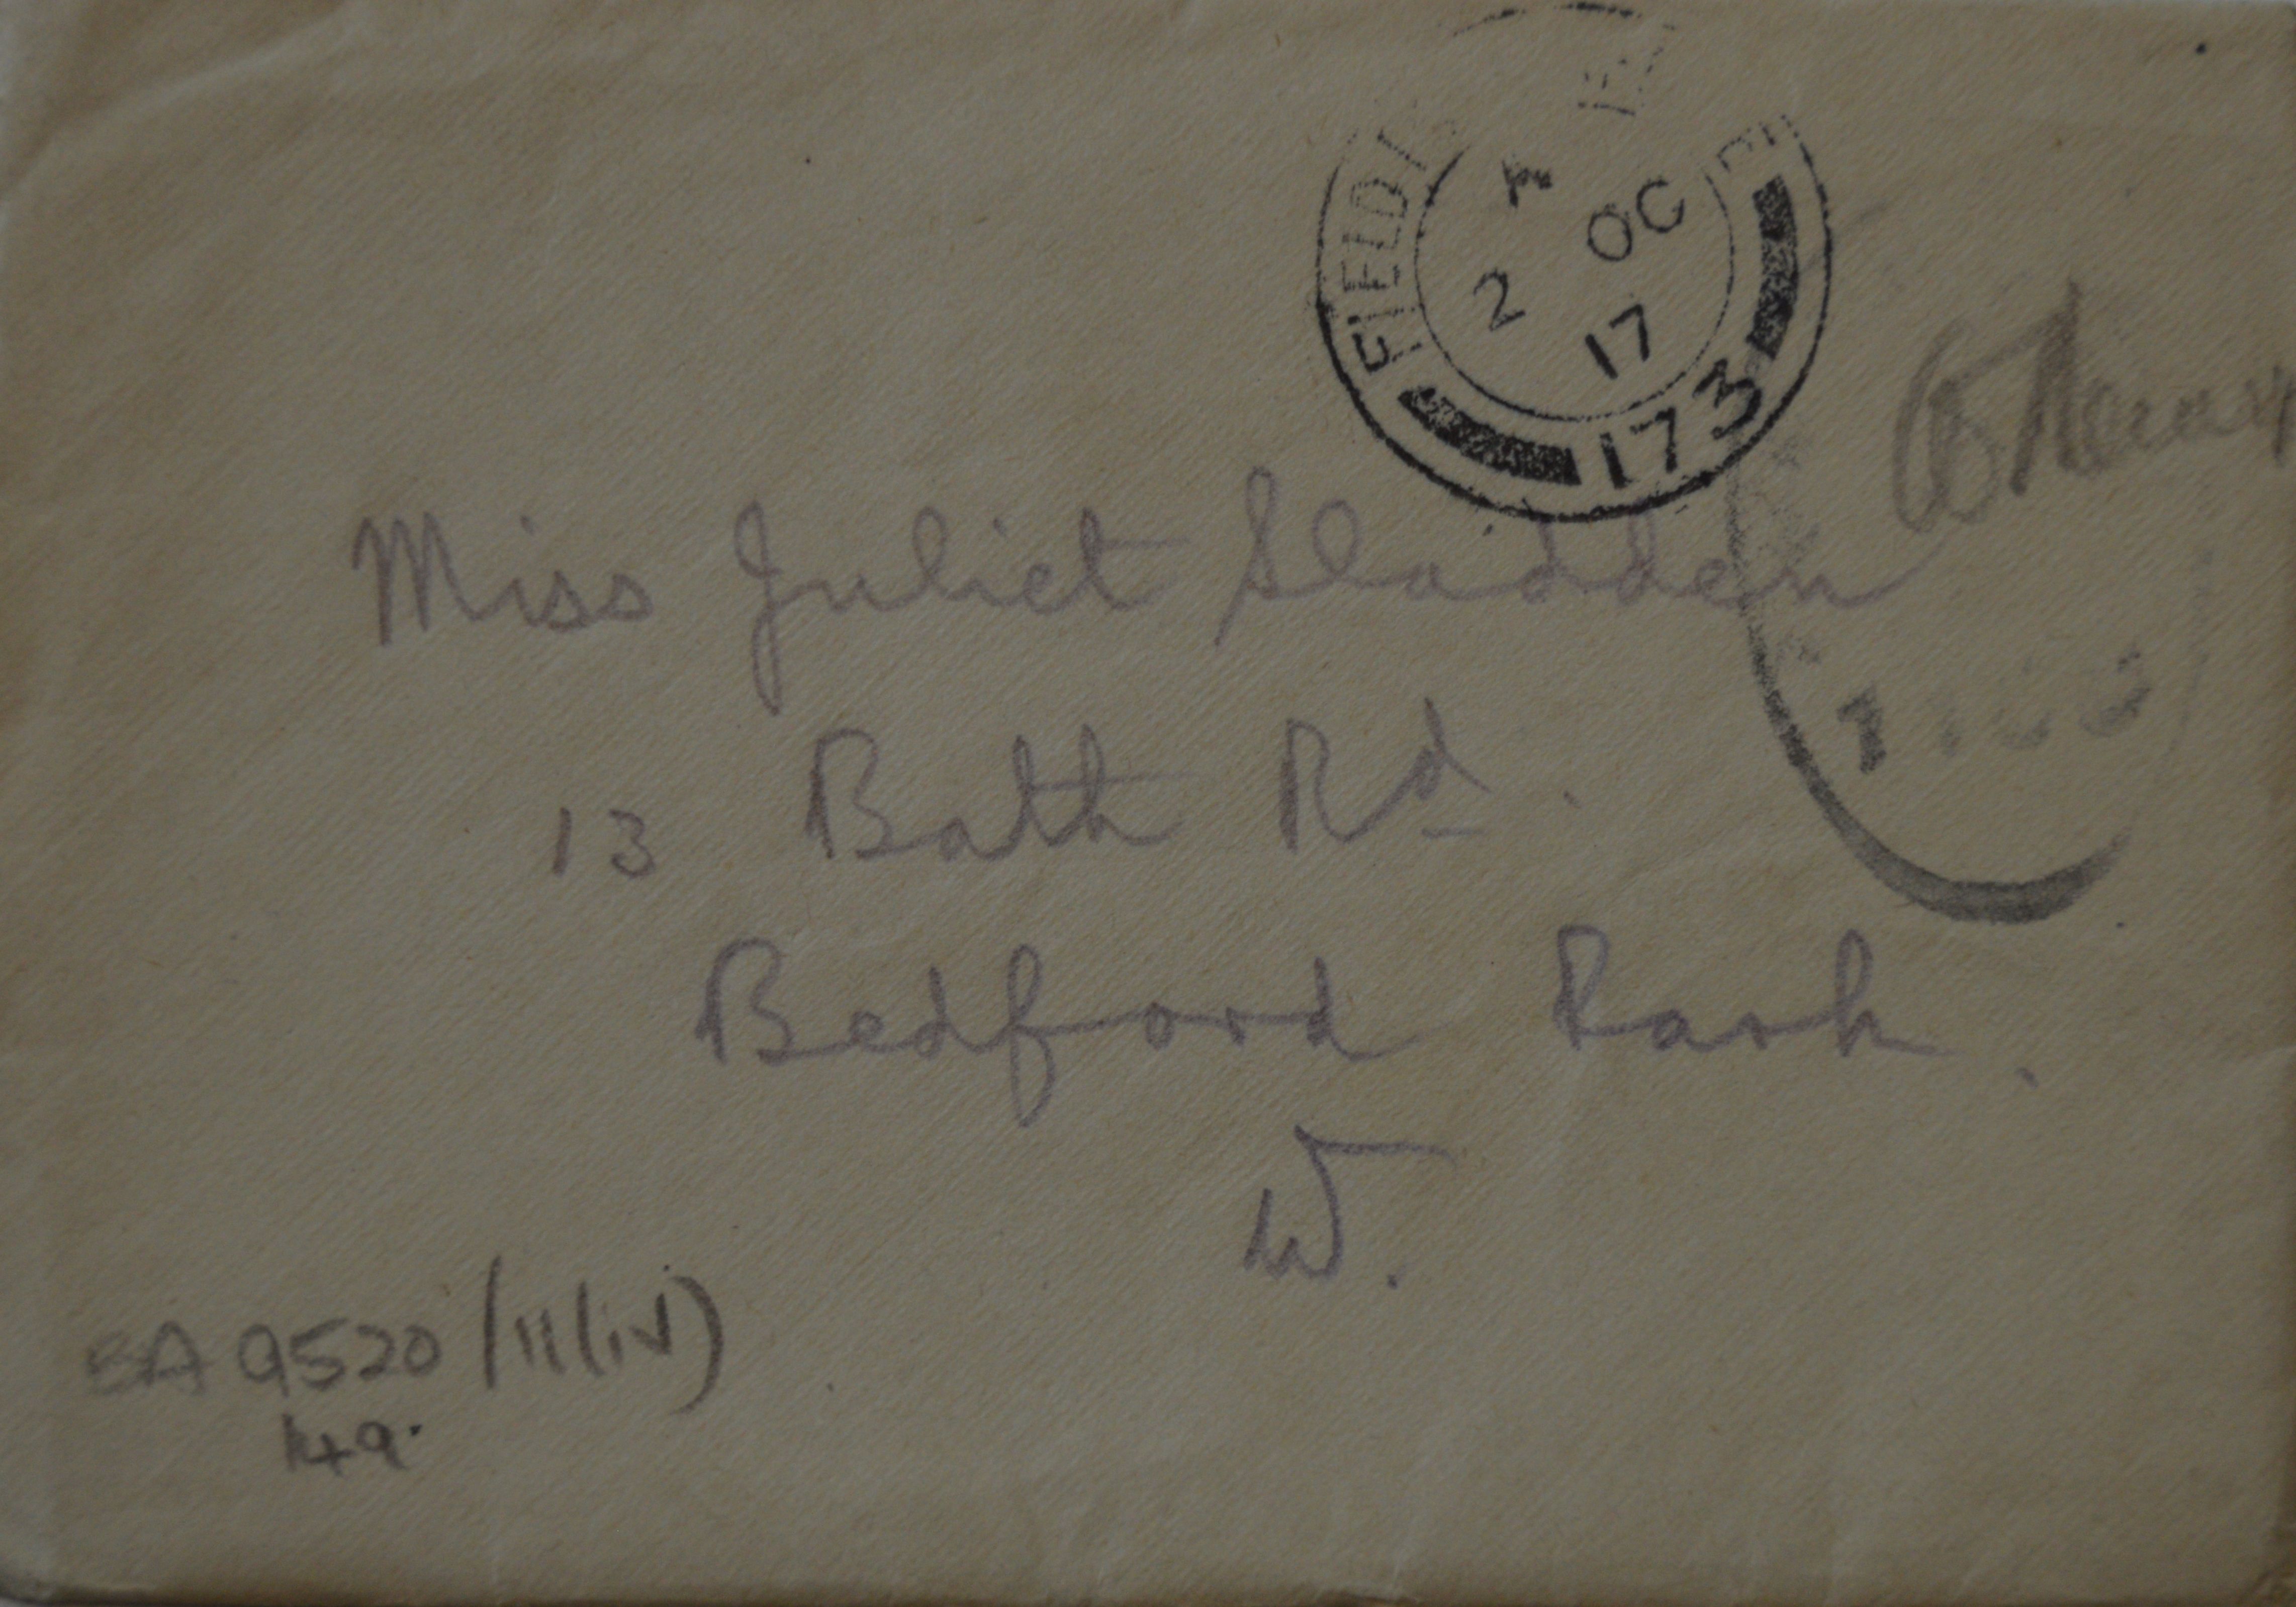 FIELD
E
2 OC
17
173
Miss Juliet Sladden
13 Bath Rd.
Bedford Park.
W.
BA 9520/11(iv)
149.